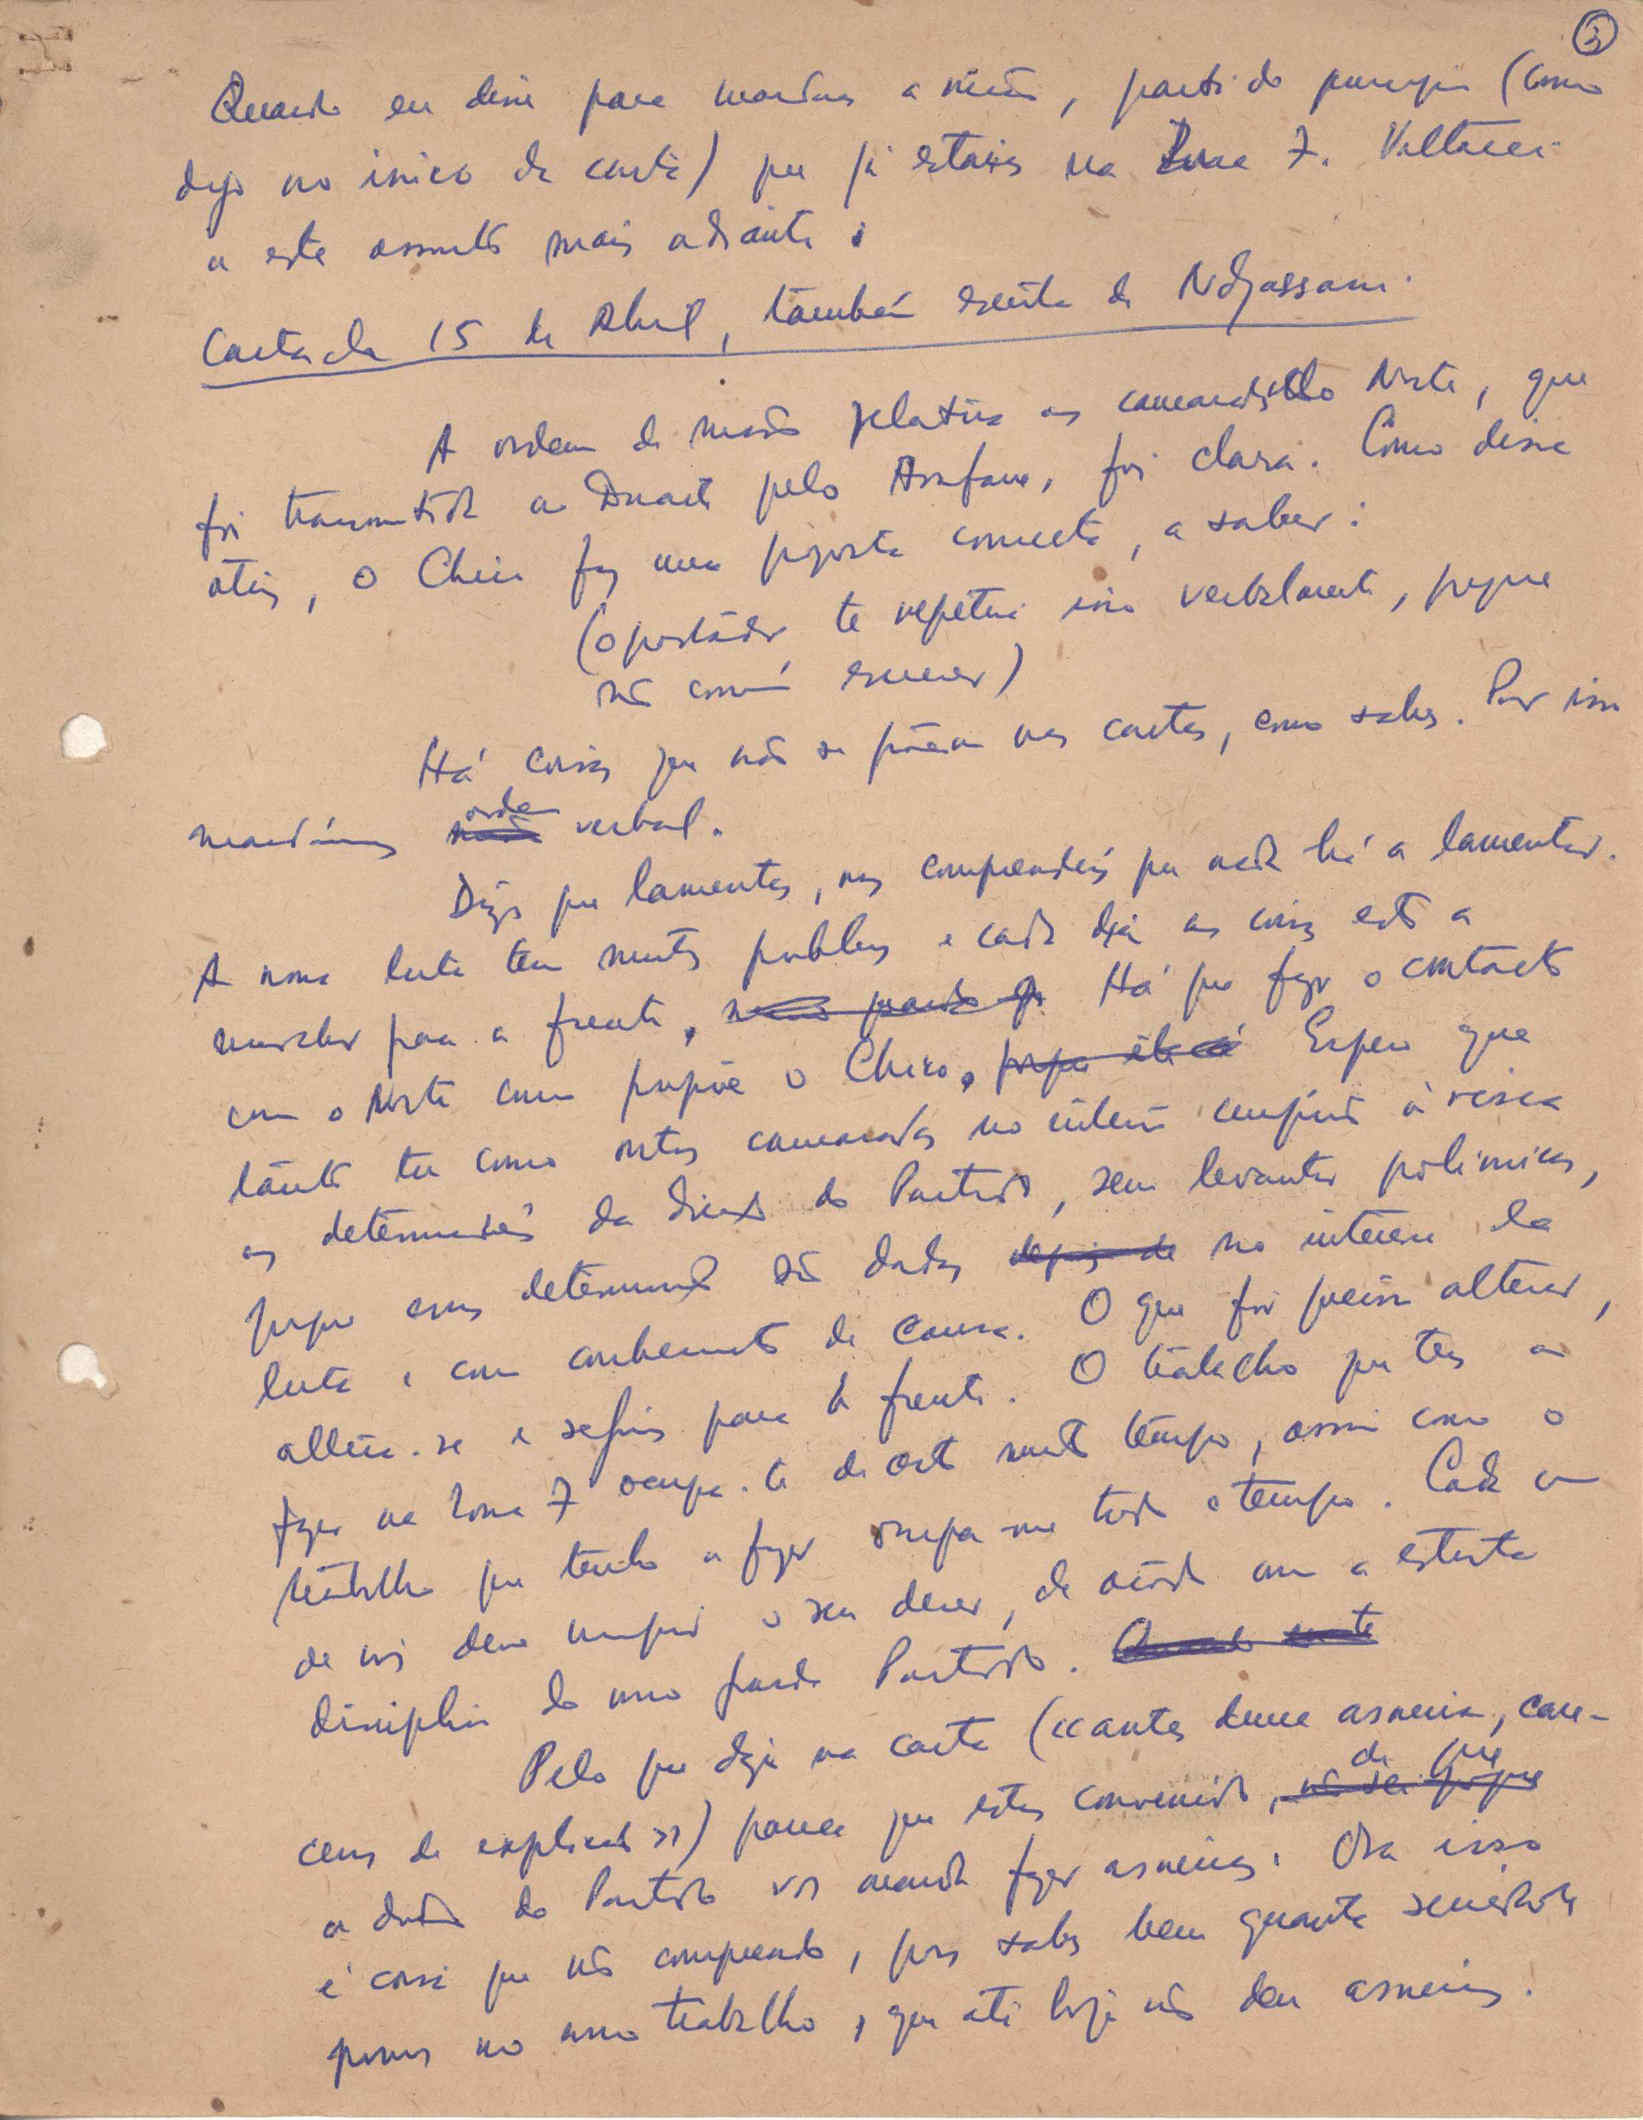 3
Quando eu disse para mandar a missão, parti do princípio (como
digo no início da carta) que já estavas na Zona 7. Voltarei
a este assunto mais adiante.
Carta de 15 de Abril, também escrita de Ndjassani.
A ordem de missão relativa aos camaradas do Norte, que
foi transmitida ao Duarte pelo Arafane, foi clara. Como disse
atrás, o Chico faz uma proposta concreta, a saber:
(o portador te repetirá isso verbalmente, porque
não convém escrever)
Há coisas que não se põem nas cartas, como sabes. Por isso
mandámos ordem verbal.
Dizes que lamentas, mas compreendes que nada há a lamentar.
A nossa luta tem muitos problemas e cada dia as coisas estão a
marchar para a frente. Há que fazer o contacto
com o Norte como propõe o Chico. Espero que
tanto tu como outros camaradas no interior cumpram à risca
as determinações da direcção do Partido, sem levantar polémicas,
porque essas determinações são dadas no interesse da
luta e com conhecimento de causa. O que for preciso alterar,
altera-se e seguimos para a frente. O trabalho que tens a
fazer na Zona 7 ocupa-te de certo muito tempo, assim como o
trabalho que tenho a fazer ocupa-me todo o tempo. Cada um
de nós deve cumprir o seu dever, de acôrdo com a estricta
disciplina do nosso grande Partido.
Pelo que dizes na carta («antes duma asneira, care-
cemos de explicação») parece que estás convencido, de que
a direcção do Partido vos manda fazer asneiras. Ora isso
é coisa que não compreendo, pois sabes bem quanta seriedade
pomos no nosso trabalho, que até hoje não deu asneiras.